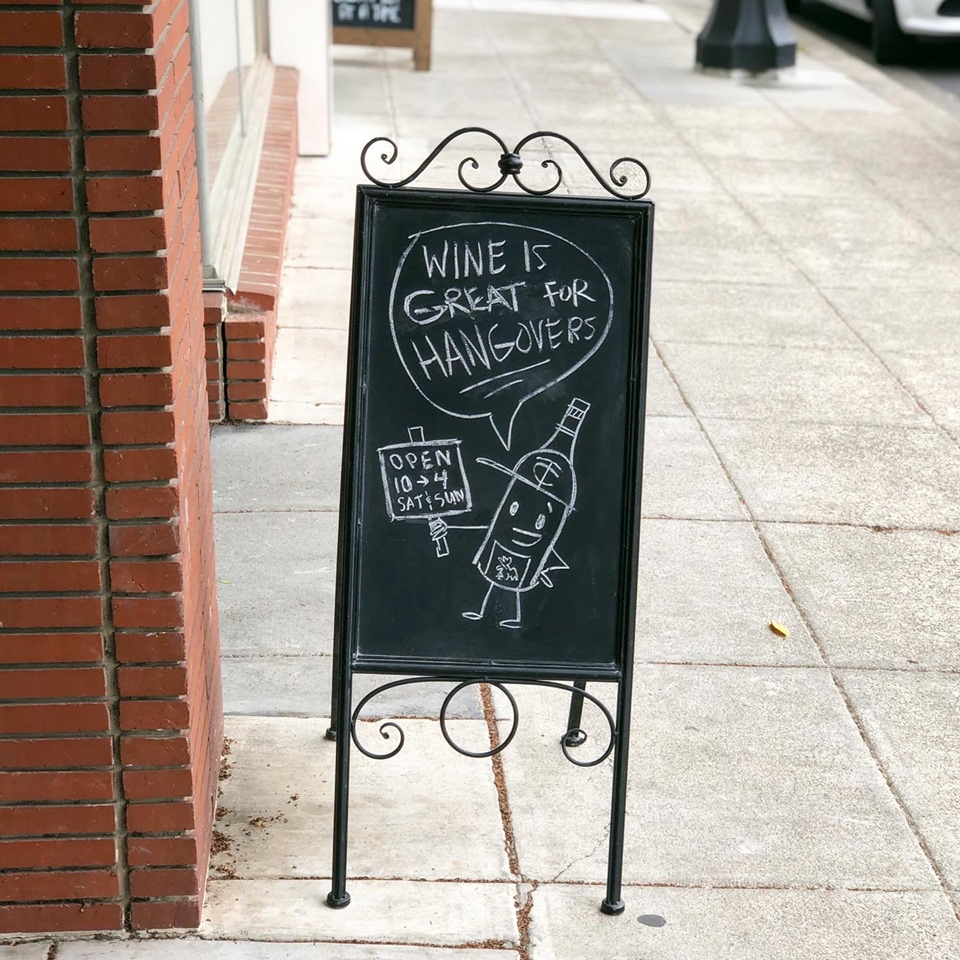 WINE IS
GREAT FOR
HANGOVERS
OPEN
10→4
SAT & SUN